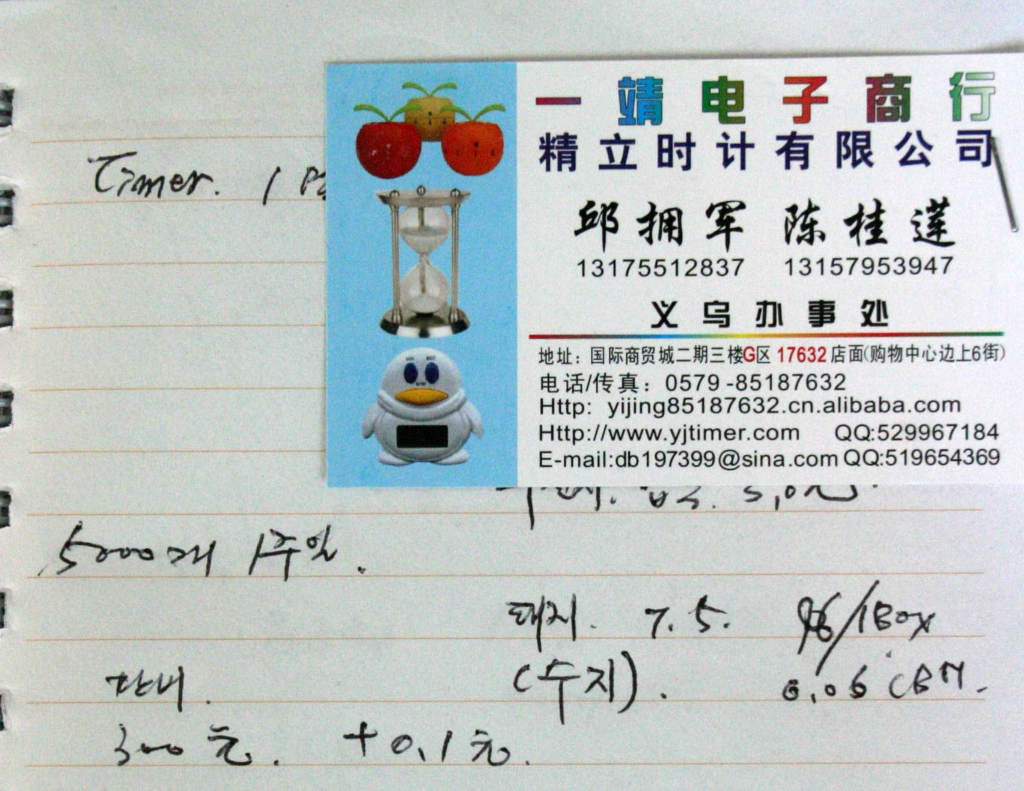 Timer. 1
一靖电子商行
精立时计有限公司
邱拥军 陈桂莲
13175512837 13157953947
义乌办事处
地址：国际商贸城二期三楼G区 17632 店面(购物中心边上6街)
电话/传真：0579-85187632
Http: yijing85187632.cn.alibaba.com
Http://www.yjtimer.com QQ:529967184
E-mail:db197399@sina.com QQ:519654369
5000개 1주일.
돼지. 7.5. 96/1Box
(수지). 0.06 CBM.
300元. +0.1元.